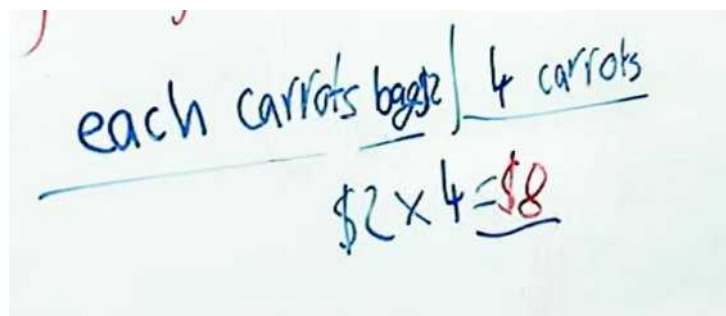 each carrots bag$2 | 4 carrots
$2 × 4 = $8